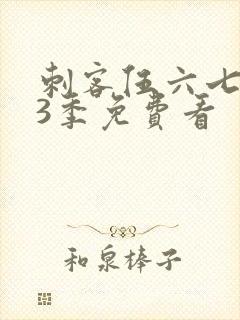 刺客伍六七
3季免費看
和泉棒子